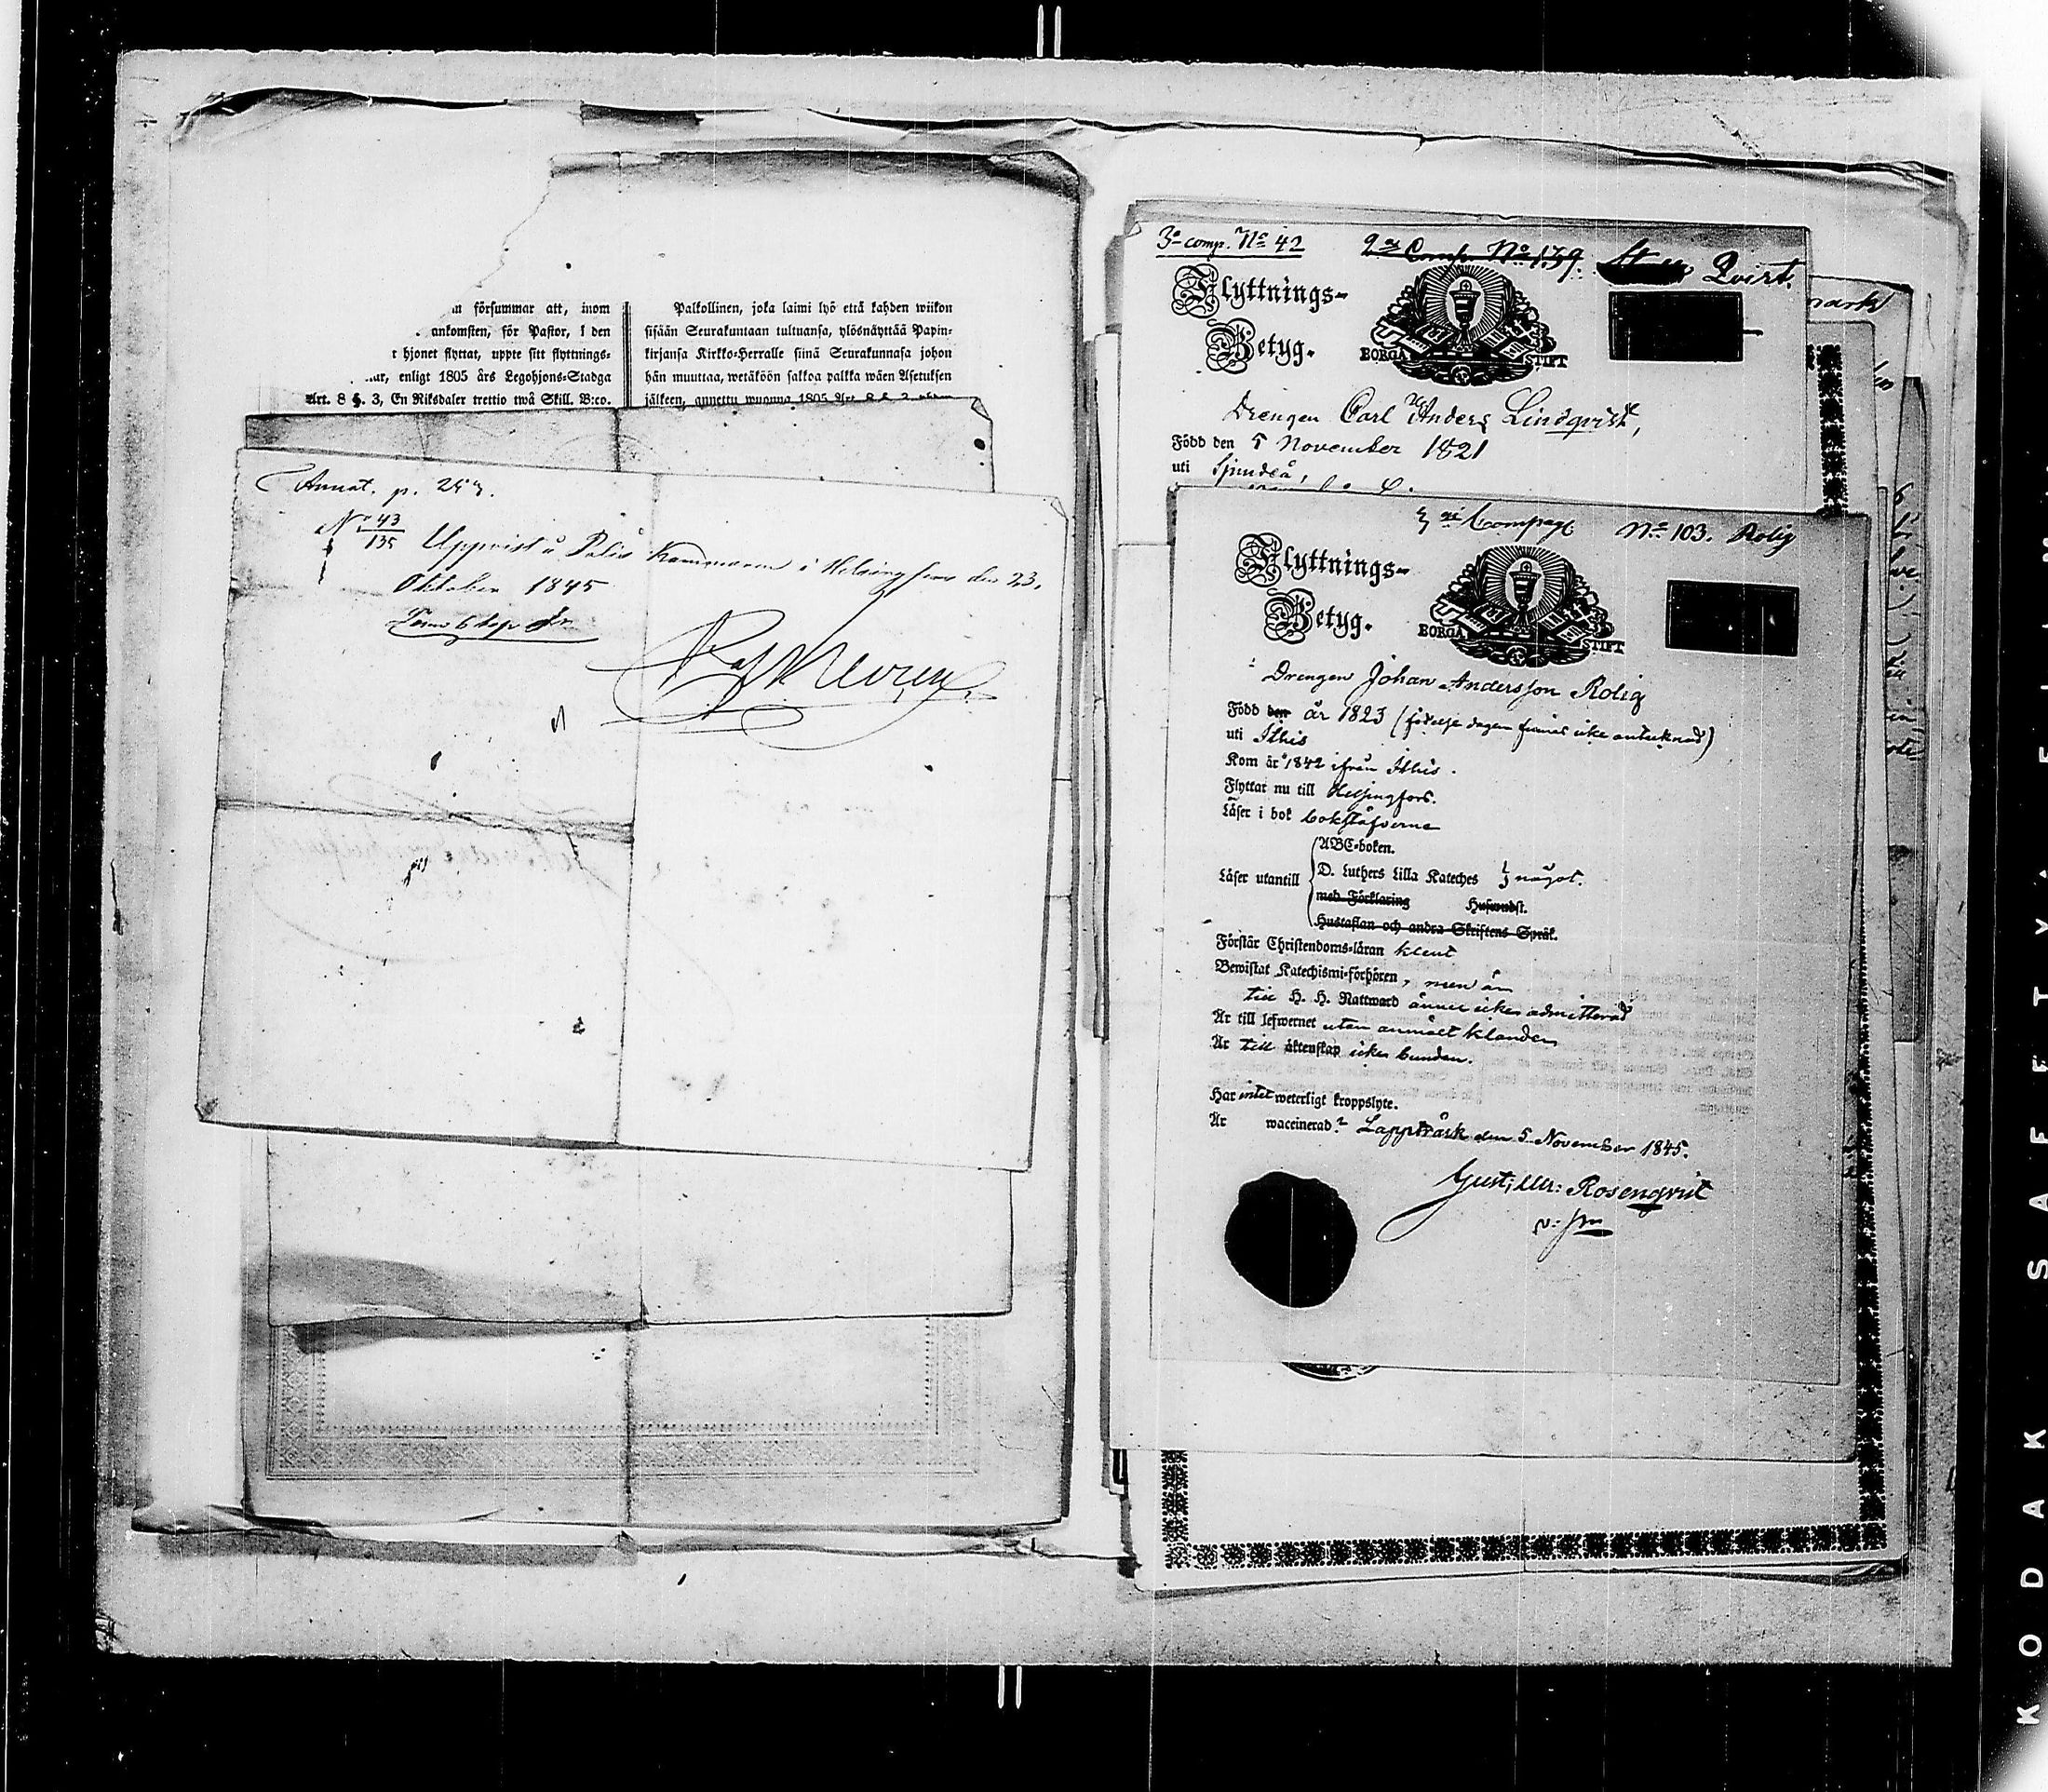 försummar att, inom
ankomsten, för Pastor, i den
hjonet flyttat, uppte sitt flyttnings-
enligt 1805 års Legohjons-Stadga
Art. 8 §. 3, En Riksdaler trettio twå Skill. B:co.
Palkollinen, joka laimi lyö että kahden wiikon
sisään Seurakuntaan tultuansa, ylösnäyttää Papin-
kirjansa Kirkko-Herralle siinä Seurakunnasa johon
hän muuttaa, wetäköön sakkoa palkka wäen Asetuksen
jälkeen, annettu wuonna 1805 Art. 8 §. 3,
Annot. p.
No 43/135 Uppvist å Polis Kammaren i Helsingfors den 23.
Oktober 1845
3e comp. No 42 2a Comp. No 139. Qvist.
Flyttnings-
Betyg.
BORGÅ STIFT
Drengen Carl Anders Lindqvist,
Född den 5 November 1821
uti Sjundeå,
Compag. No 103. Rolig
Flyttnings-
Betyg.
BORGÅ STIFT
Drengen Johan Andersson Rolig
Född den år 1823 (födelse dagen finnes icke antecknad)
uti Ithis
Kom år 1842 ifrån Ithis.
Flyttar nu till Helsingfors.
Läser i bok bokstäfverne
Läser utantill
ABC-boken.
D. Luthers Lilla Kateches något.
med Förklaring Huswudst.
Hustaflan och andra Skriftens Språk.
Förstår Christendoms-läran klent
Bewistat Katechismi-förhören, men än
till H. H. Nattward ännu icke admitterad
Är till lefwernet utan anmält klander
Är till äktenskap icke bunden.
Har intet weterligt kroppslyte.
Är waccinerad? Lappträsk den 5 November 1845.
Gust: Rosenqvist
KODAK SAFETY FILM